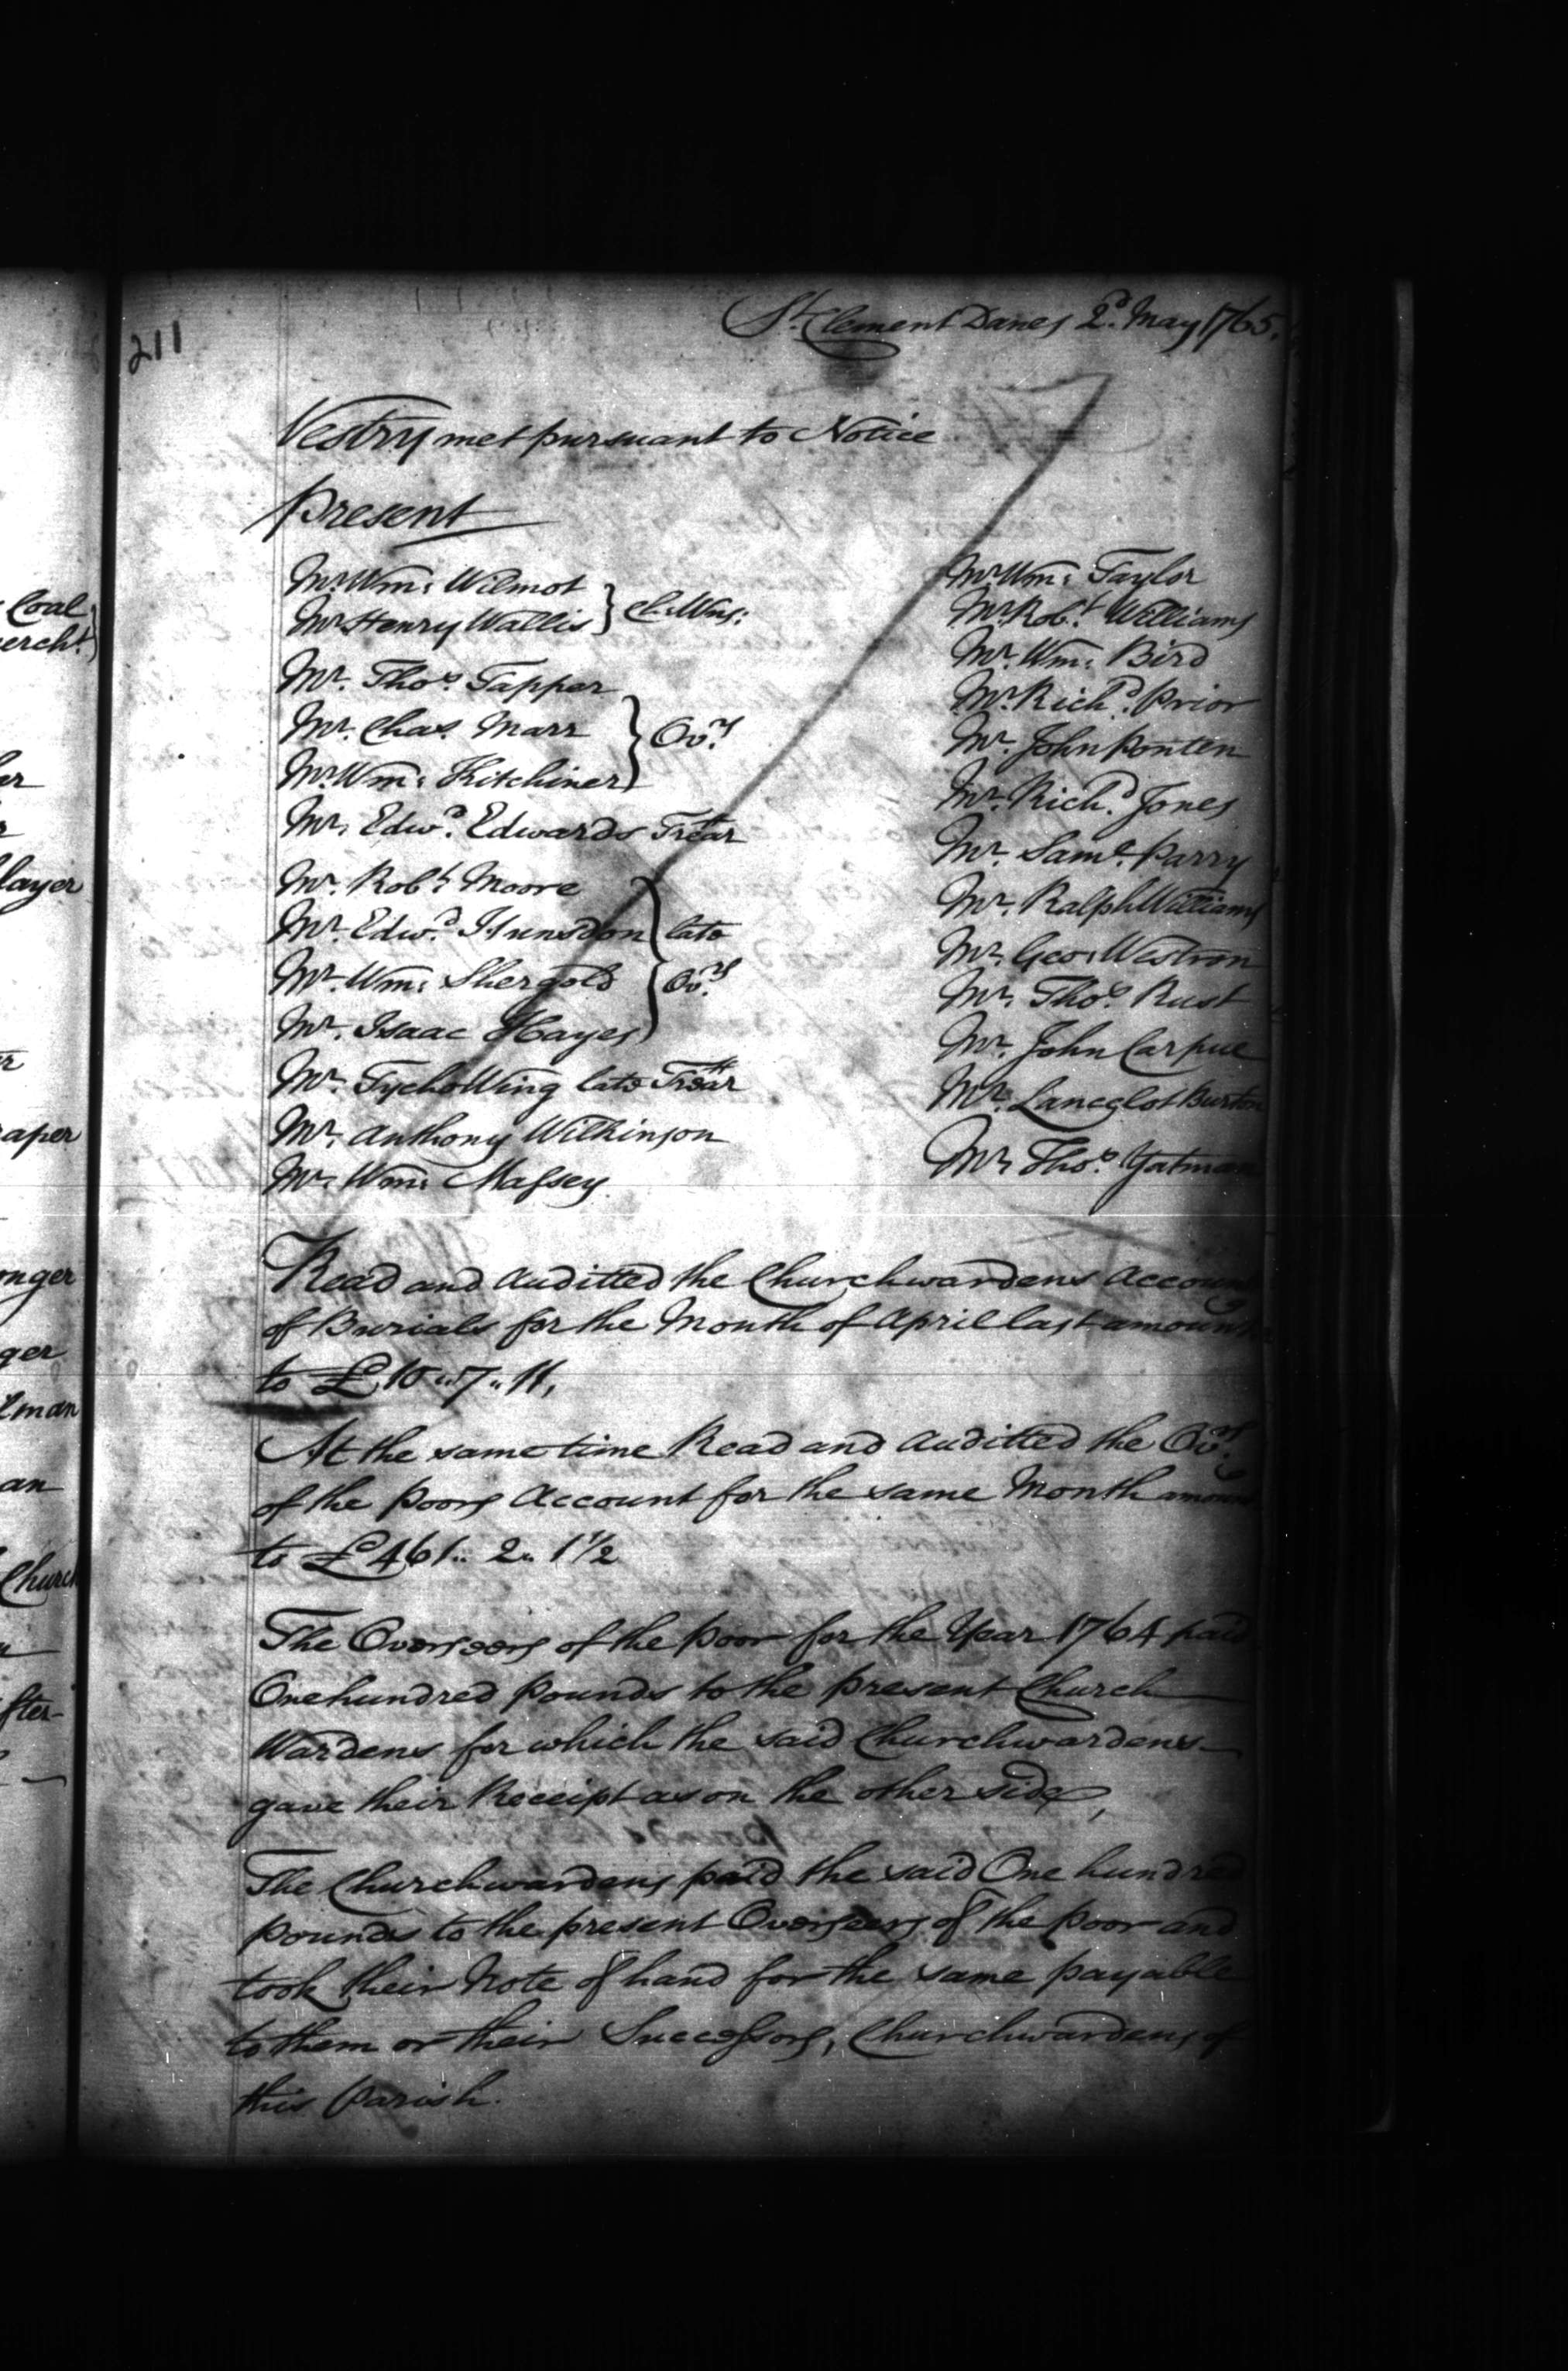 211
St. Clement Danes 2d. May 1765.
Vestry met pursuant to Notice
Present
Mr. Wm: Wilmot
Mr. Henry Wallis } Ch: Wns:
Mr. Thos. Tapper
Mr. Chas. Marr } Ovrs
Mr. Wm: Kitchiner
Mr. Edwd. Edwards Trear
Mr. Robt. Moore
Mr. Edwd. Hunsdon } late
Mr. Wm: Shergold } Ovrs
Mr. Isaac Hayes
Mr. Tycho Wing late Trear
Mr. Anthony Wilkinson
Mr. Wm: Massey
Mr. Wm: Taylor
Mr. Robt. Williams
Mr. Wm: Bird
Mr. Richd. Prior
Mr. John Ponten
Mr. Richd. Jones
Mr. Saml. Parry
Mr. Ralph Williams
Mr. Geo: Westron
Mr. Thos. Rust
Mr. John Carpue
Mr. Lancelot Burton
Mr. Thos. Yatman
Read and Auditted the Churchwardens Account
of Burials for the Month of April last amount
to £10..7..11,
At the same time Read and Auditted the Ovrs
of the Poors Account for the same Month amount
to £461.. 2.. 1½
The Overseers of the Poor for the Year 1764 paid
One hundred Pounds to the present Church
Wardens for which the said Churchwardens
gave their Receipt as on the other side,
The Churchwardens paid the said One hundred
pounds to the present Overseers of the Poor and
took their Note of hand for the same payable
to them or their Successors, Churchwardens of
this Parish.
Coal
ercht.
er
r
layer
r
aper
onger
ger
man
an
Church
n
fter-